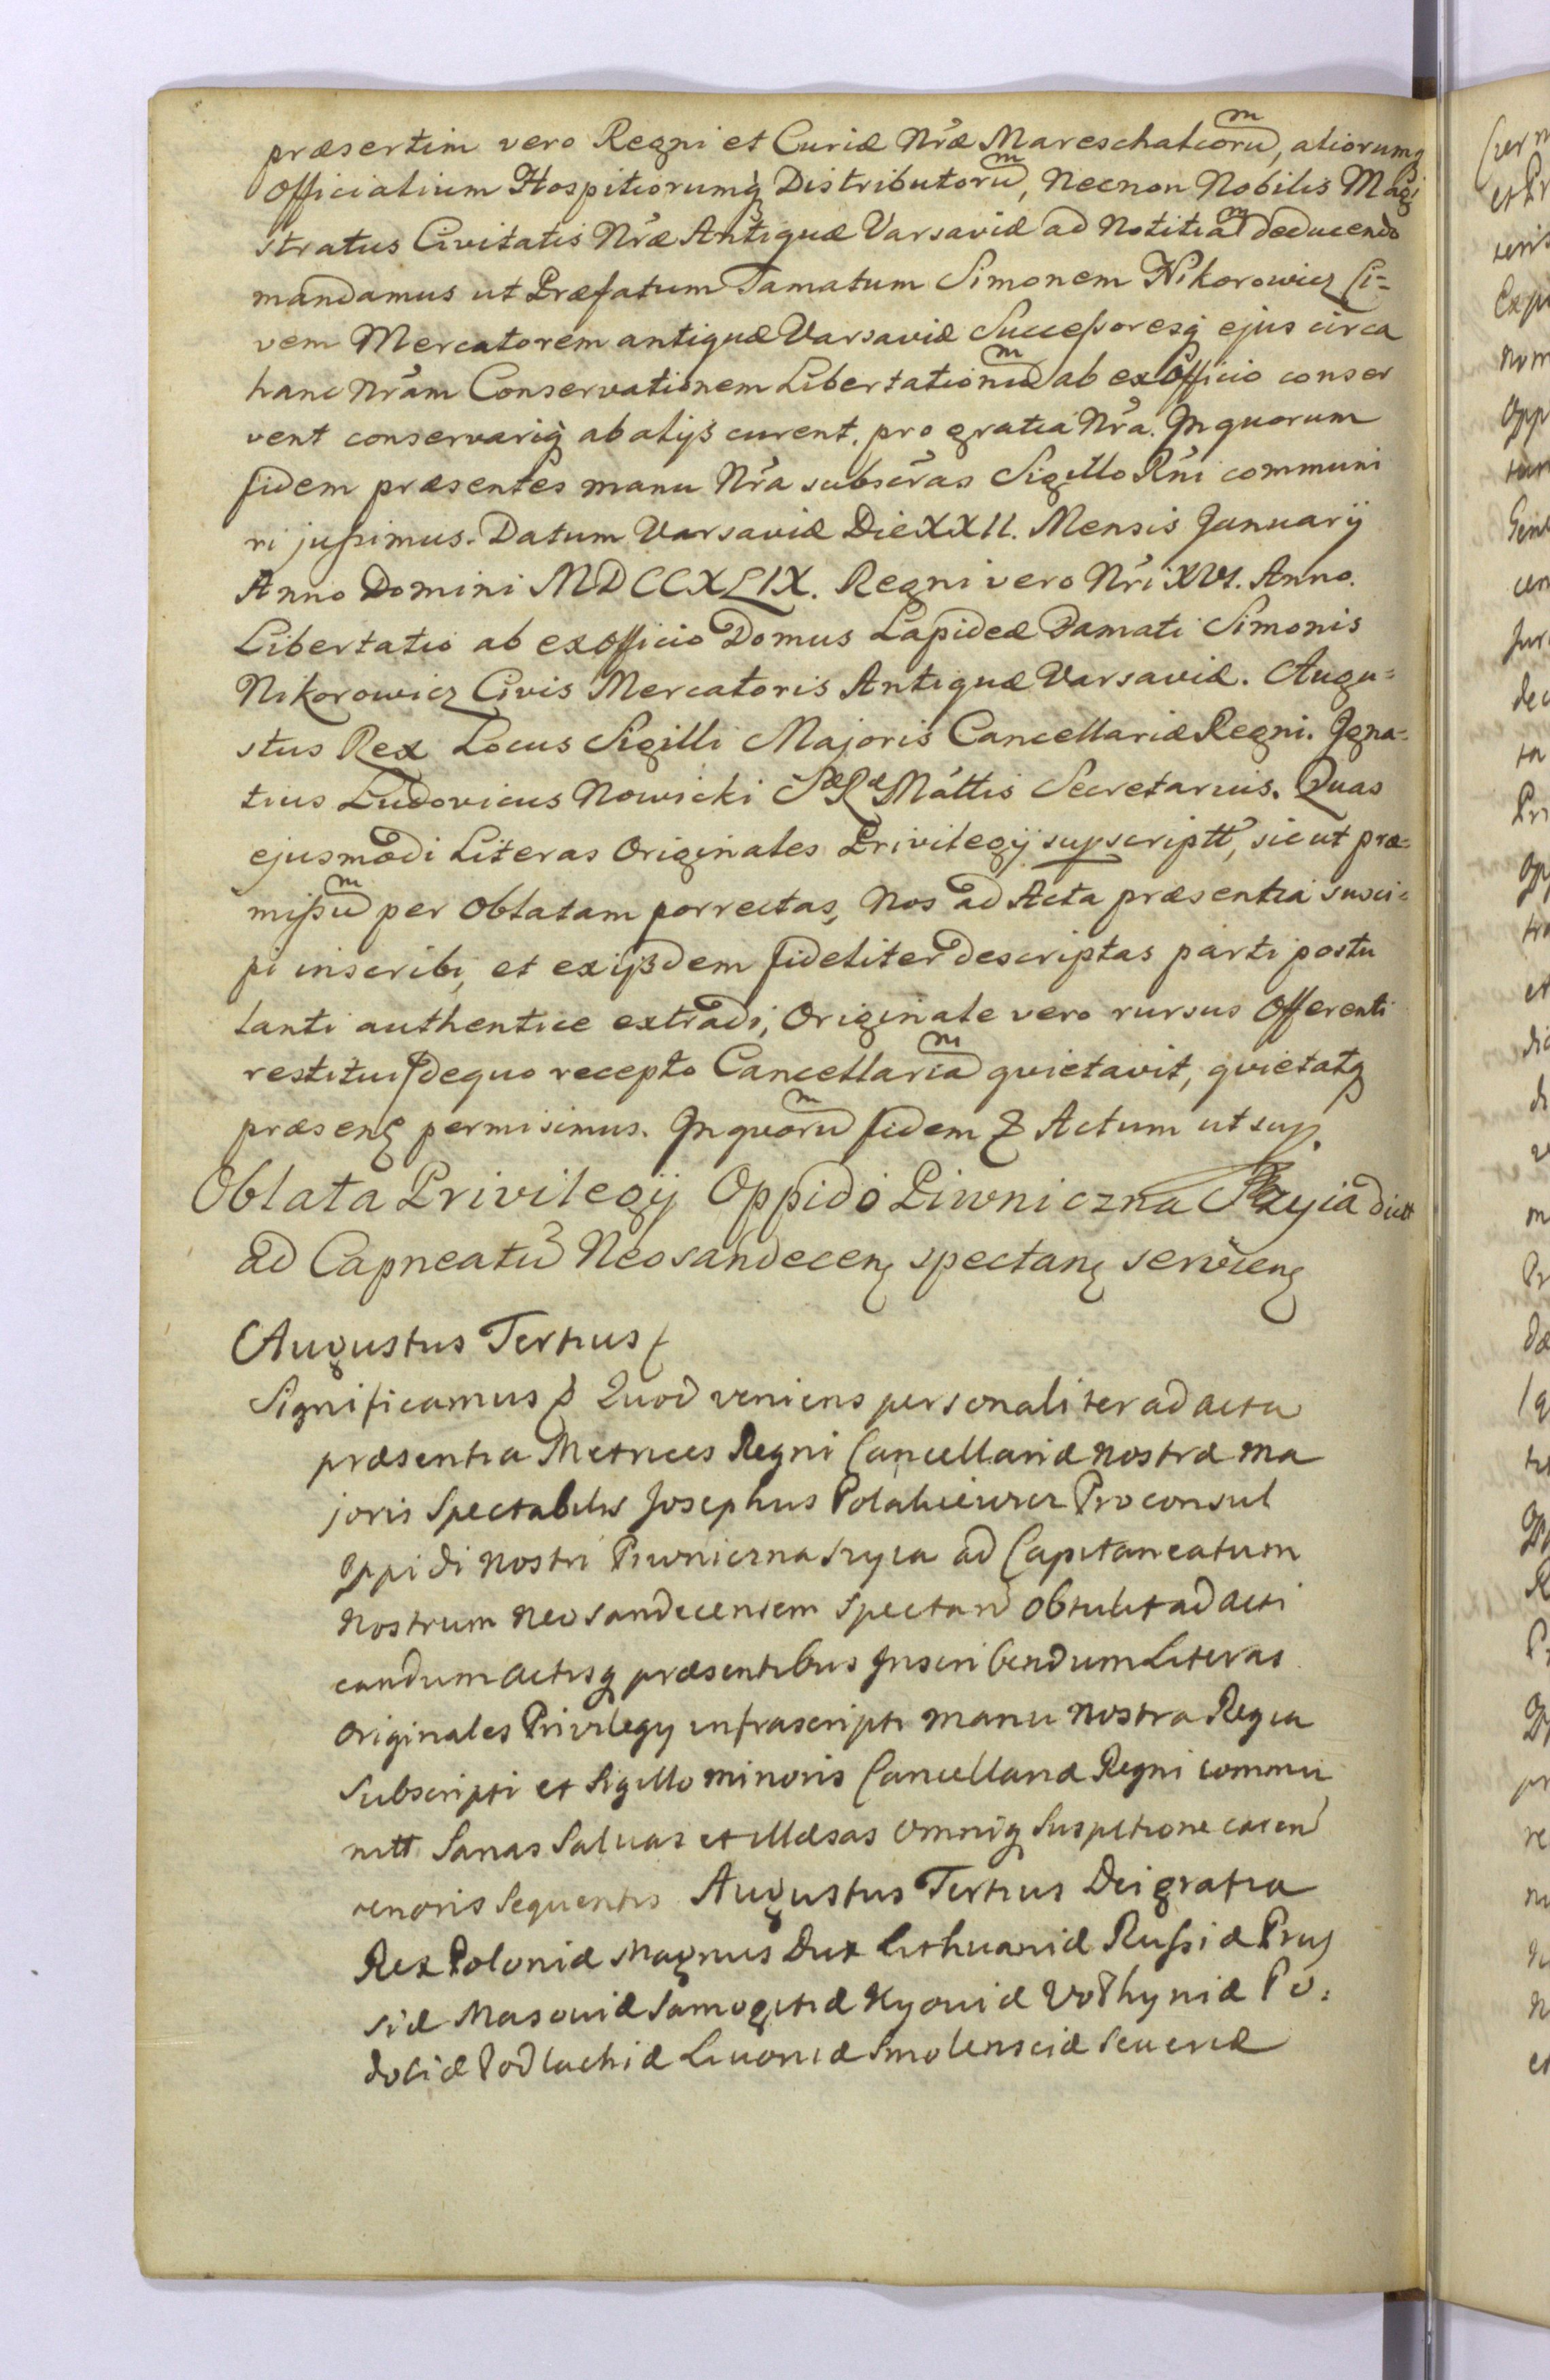 præsertim vero Regni et Curiæ Nr̃æ Mareschalcorũm, aliorumq
Officialium Hospitiorumq́ Distributorũm, Necnon Nobilis Magi
stratus Civitatis Nr̃æ Antiquæ Varsaviæ ad Notitiãm deducendo
mandamus ut Præfatum Famatum Simonem Nikorowicz Ci=
vem Mercatorem antiquæ Varsaviæ Successoresq́ ejus circa
hanc Nr̃am Conservationem Libertationũm ab ex Officio conser
vent conservariq́ ab alijs curent, pro gratia Nr̃a. In quorum
fidem præsentes manu Nr̃a subscr̃as Sigillo Rñi communi
ri jussimus. Datum Varsaviæ Die XXII. Mensis Januarij
Anno Domini MDCCXLIX. Regni vero Nr̃i XVI. Anno.
Libertatio ab ex Officio Domus Lapideæ Famati Simonis
Nikorowicz Civis Mercatoris Antiquæ Varsaviæ. Augu=
stus Rex Locus Sigilli Majoris Cancellariæ Regni. Igna=
tius Ludovicus Nowicki Sæ Ræ Mãttis Secretarius. Quas
ejusmodi Literas Originales Privilegij supscriptt, sicut præ=
missũm per Oblatam porrectas, Nos ad Acta præsentia susci=
pi inscribi, et ex ijsdem fideliter descriptas parti postu
lanti authentice extradi, Originale vero rursus Offerenti
restitui / de quo recepto Cancellariãm quietavit, quietatq
præsenʒ permisimus. In quorũm fidem & Actum ut sup.
Oblata Privilegij Oppido Piwniczna Szyia dictt
ad Capneatũ Neosandecenʒ spectanʒ servienʒ
Augustus Tertius /
Significamus & Quod veniens personaliter ad acta
præsentia Metrices Regni Cancellariæ nostræ ma
joris Spectabilis Josephus Polakiewicz Proconsul
Oppidi nostri Piwniczna Szyia ad Capitaneatum
nostrum Neosandecensem Spectan̄ obtulit ad acti
candum actisq præsentibus Inscribendum Literas
Originales Privilegy infrascripti manu nostra Regia
Subscripti et Sigillo minoris Cancellariæ Regni commu
nitt Sanas Salvas et illæsas omniq Suspitione caren̄
tenoris Sequentis Augustus Tertius Dei gratia
Rex Poloniæ Magnus Dux Lithuaniæ Russiæ Prus
siæ Masoviæ Samogitiæ Kyoviæ Volhyniæ Po=
doliæ Podlachiæ Livoniæ Smolensciæ Severiæ